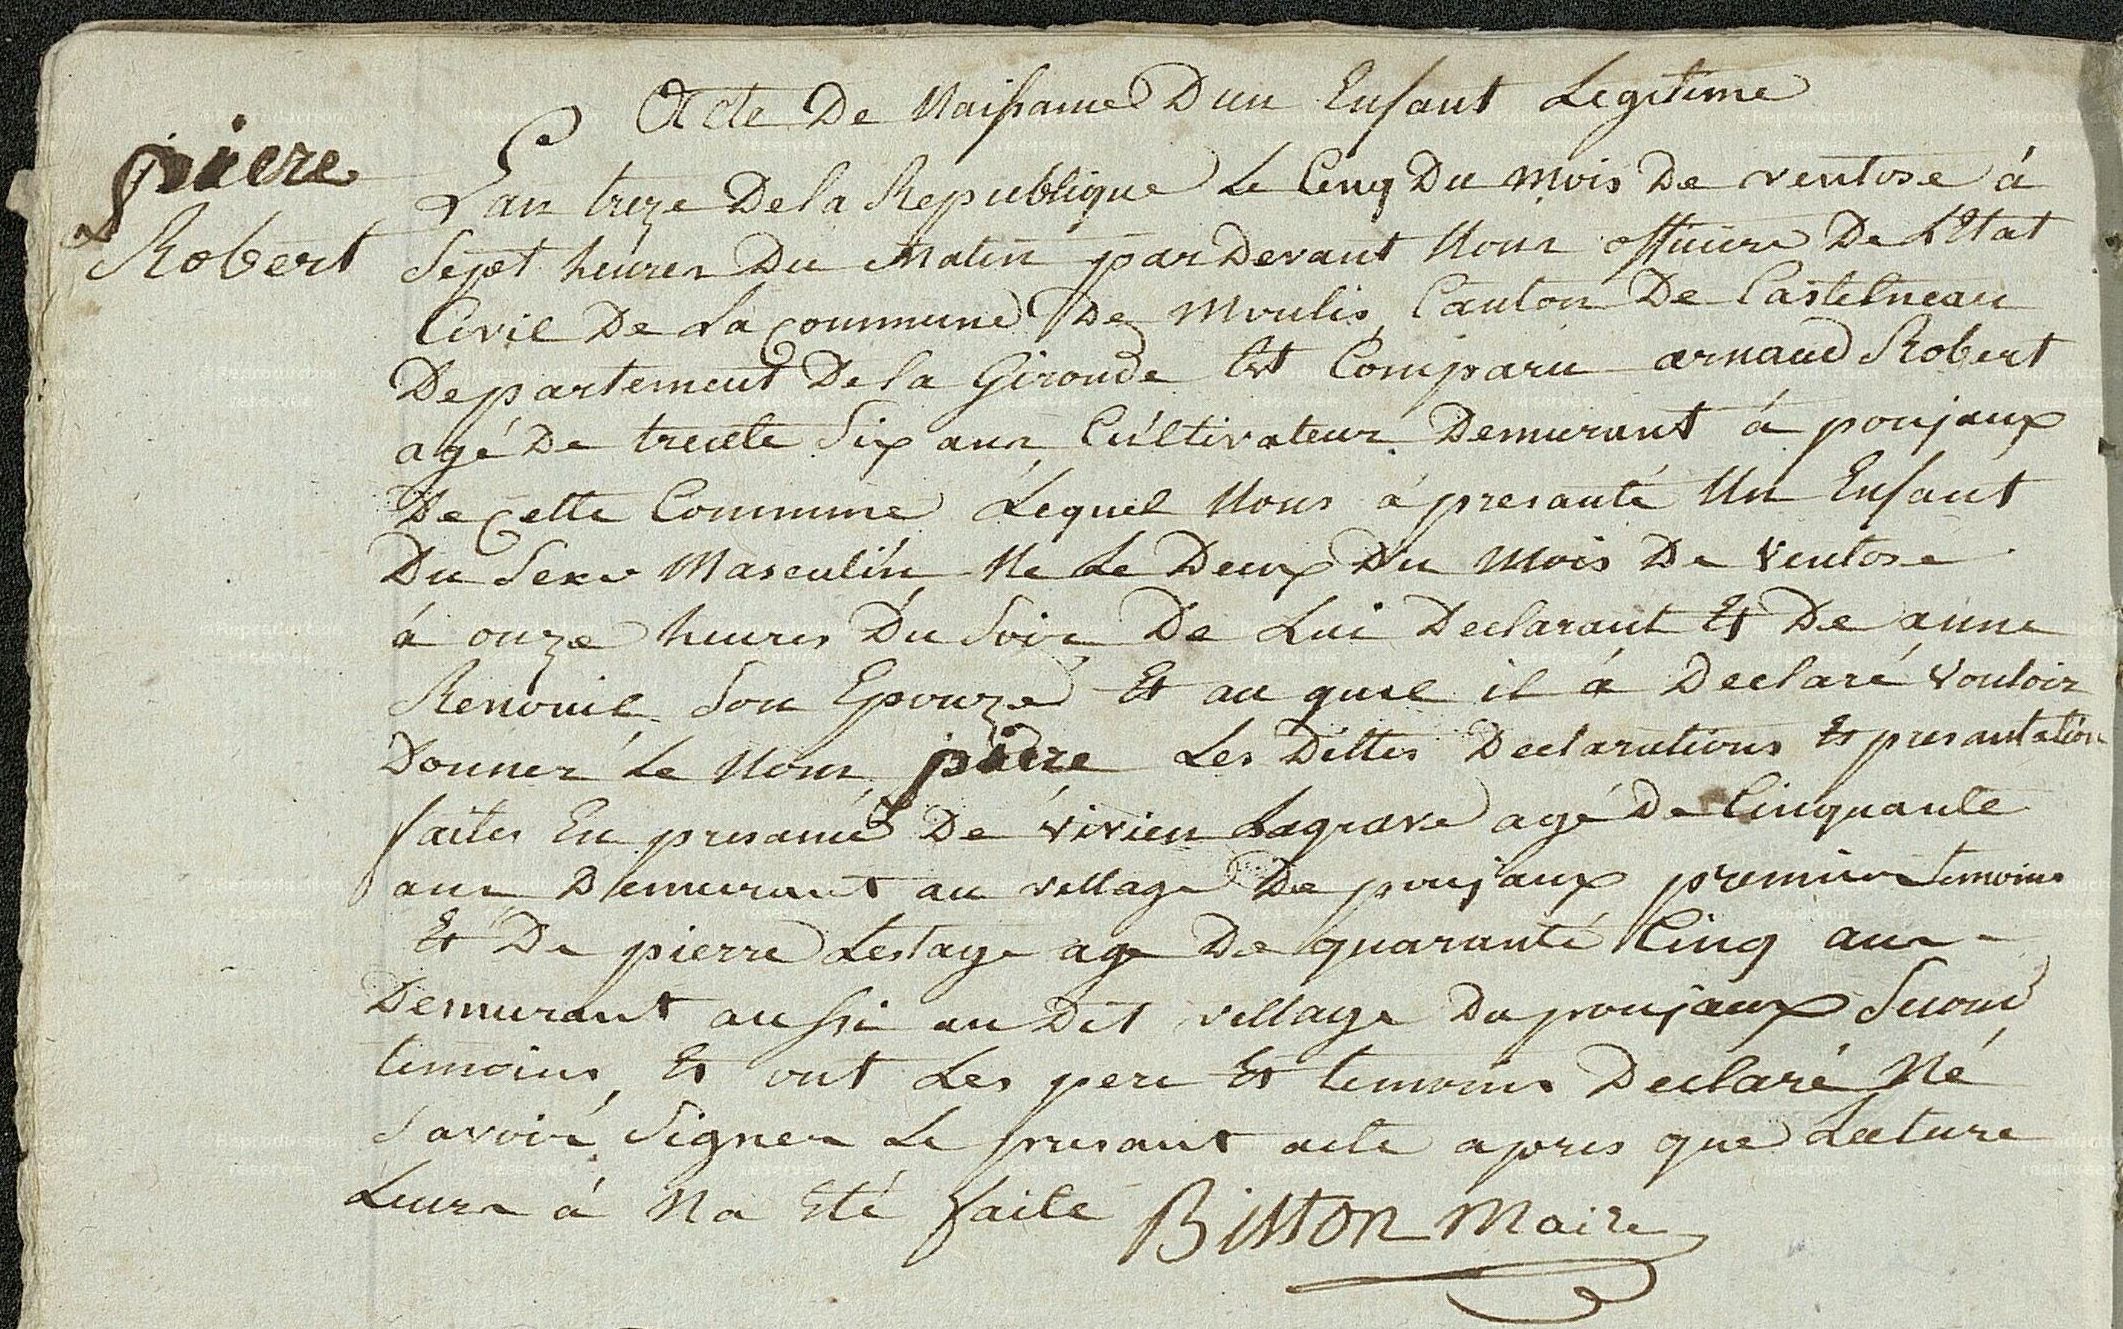 Acte De Naissance Dun Enfant Legitime
pierre
Robert
Lan treze De la Republique Le Cinq Du mois De ventose á
Sept heures Du Matin par Devant Nous officiere De L'Etat
Civil De La Commune De Moulis Canton De Castelneau
Departement De la Gironde Est Comparu arnaud Robert
agé De trente Six ans Cultivateur Demurant á poujaux
De Cette Commune Lequel Nous á presanté Un Enfant
Du Sexe Masculin Ne Le Deux Du Mois De Ventose
á onze heures Du Soir De Lui Declarant Et De anne
Renouil Son Epouze Et au quel il á Declaré Vouloir
Donner Le Nom pierre Les Dittes Declarations Et presantation
faites En presance De Vivien Lagrave agé De Cinquante
ans Demurant au village De poujaux premier temoins
Et De pierre Lestage age De quaranté Cinq ans
Demurant aussi au Dit village De poujaux Second
temoins, Et ont Les pere Et temoins Declaré Né
Savoir Signer Le presant acte apres que Lecture
Leurs á Na Eté faite
Bitton Maire